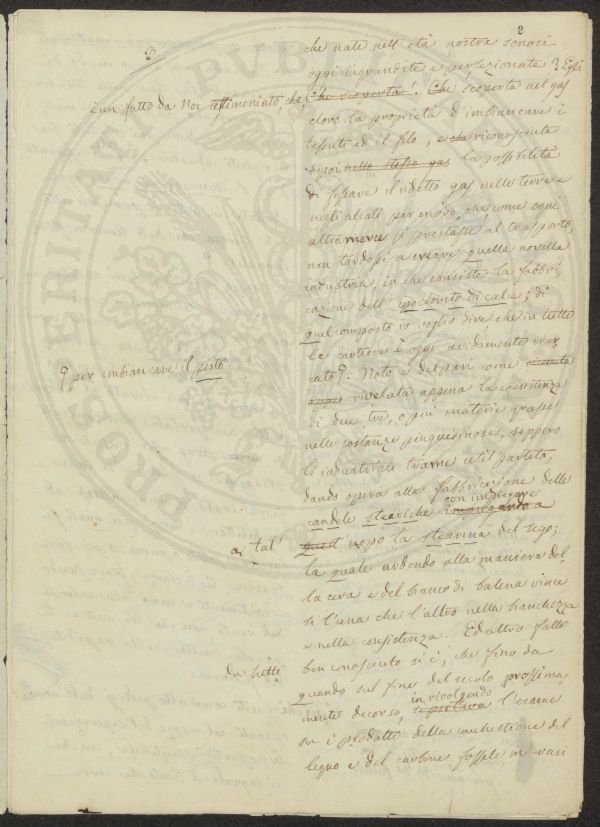 2
che nate nell'età nostra sonosi
oggi ingrandite e perfezionate. Egli
è un fatto da Noi testimoniato, che
Che scoperta nel gas
cloro la proprietà d'imbiancare i
tessuti ed il filo, e che riconosciuta
dipoi nello stesso gas la possibilità
di fissare il ridetto gas nelle terre e
negli alcali per modo, che come ogni
altra merce si prestasse al trasporto,
non tardossi a creare quella novella
industria, in che consiste la fabbri
cazione dell'ipoclorito di calce; di
quel composto io voglio dire che in tutte
le cartiere è oggi avidamente ricer
cato. Noto è del pari come
per imbiancare il pesto.
appena rivelata appena la coesistenza
di due tre, o più materie grasse
nelle sostanze pinguedinose, seppero
li industriali trarne util partito,
dando opera alla fabbricazione delle
con impiegare
candele steariche impiegando a
a tal
quest'uopo la stearina del sego;
la quale ardendo alla maniera del
la cera e del bianco di balena vince
sì l'una che l'altro nella bianchezza
e nella consistenza. Ed altro fatto
da tutti
ben conosciuto si è, che fino da
quando sul fine del secolo prossima
mente decorso, in rivolgendo l'esame
su i prodotti della combustione del
legno e del carbone fossile in vasi
PROSPERITAE PVBLI